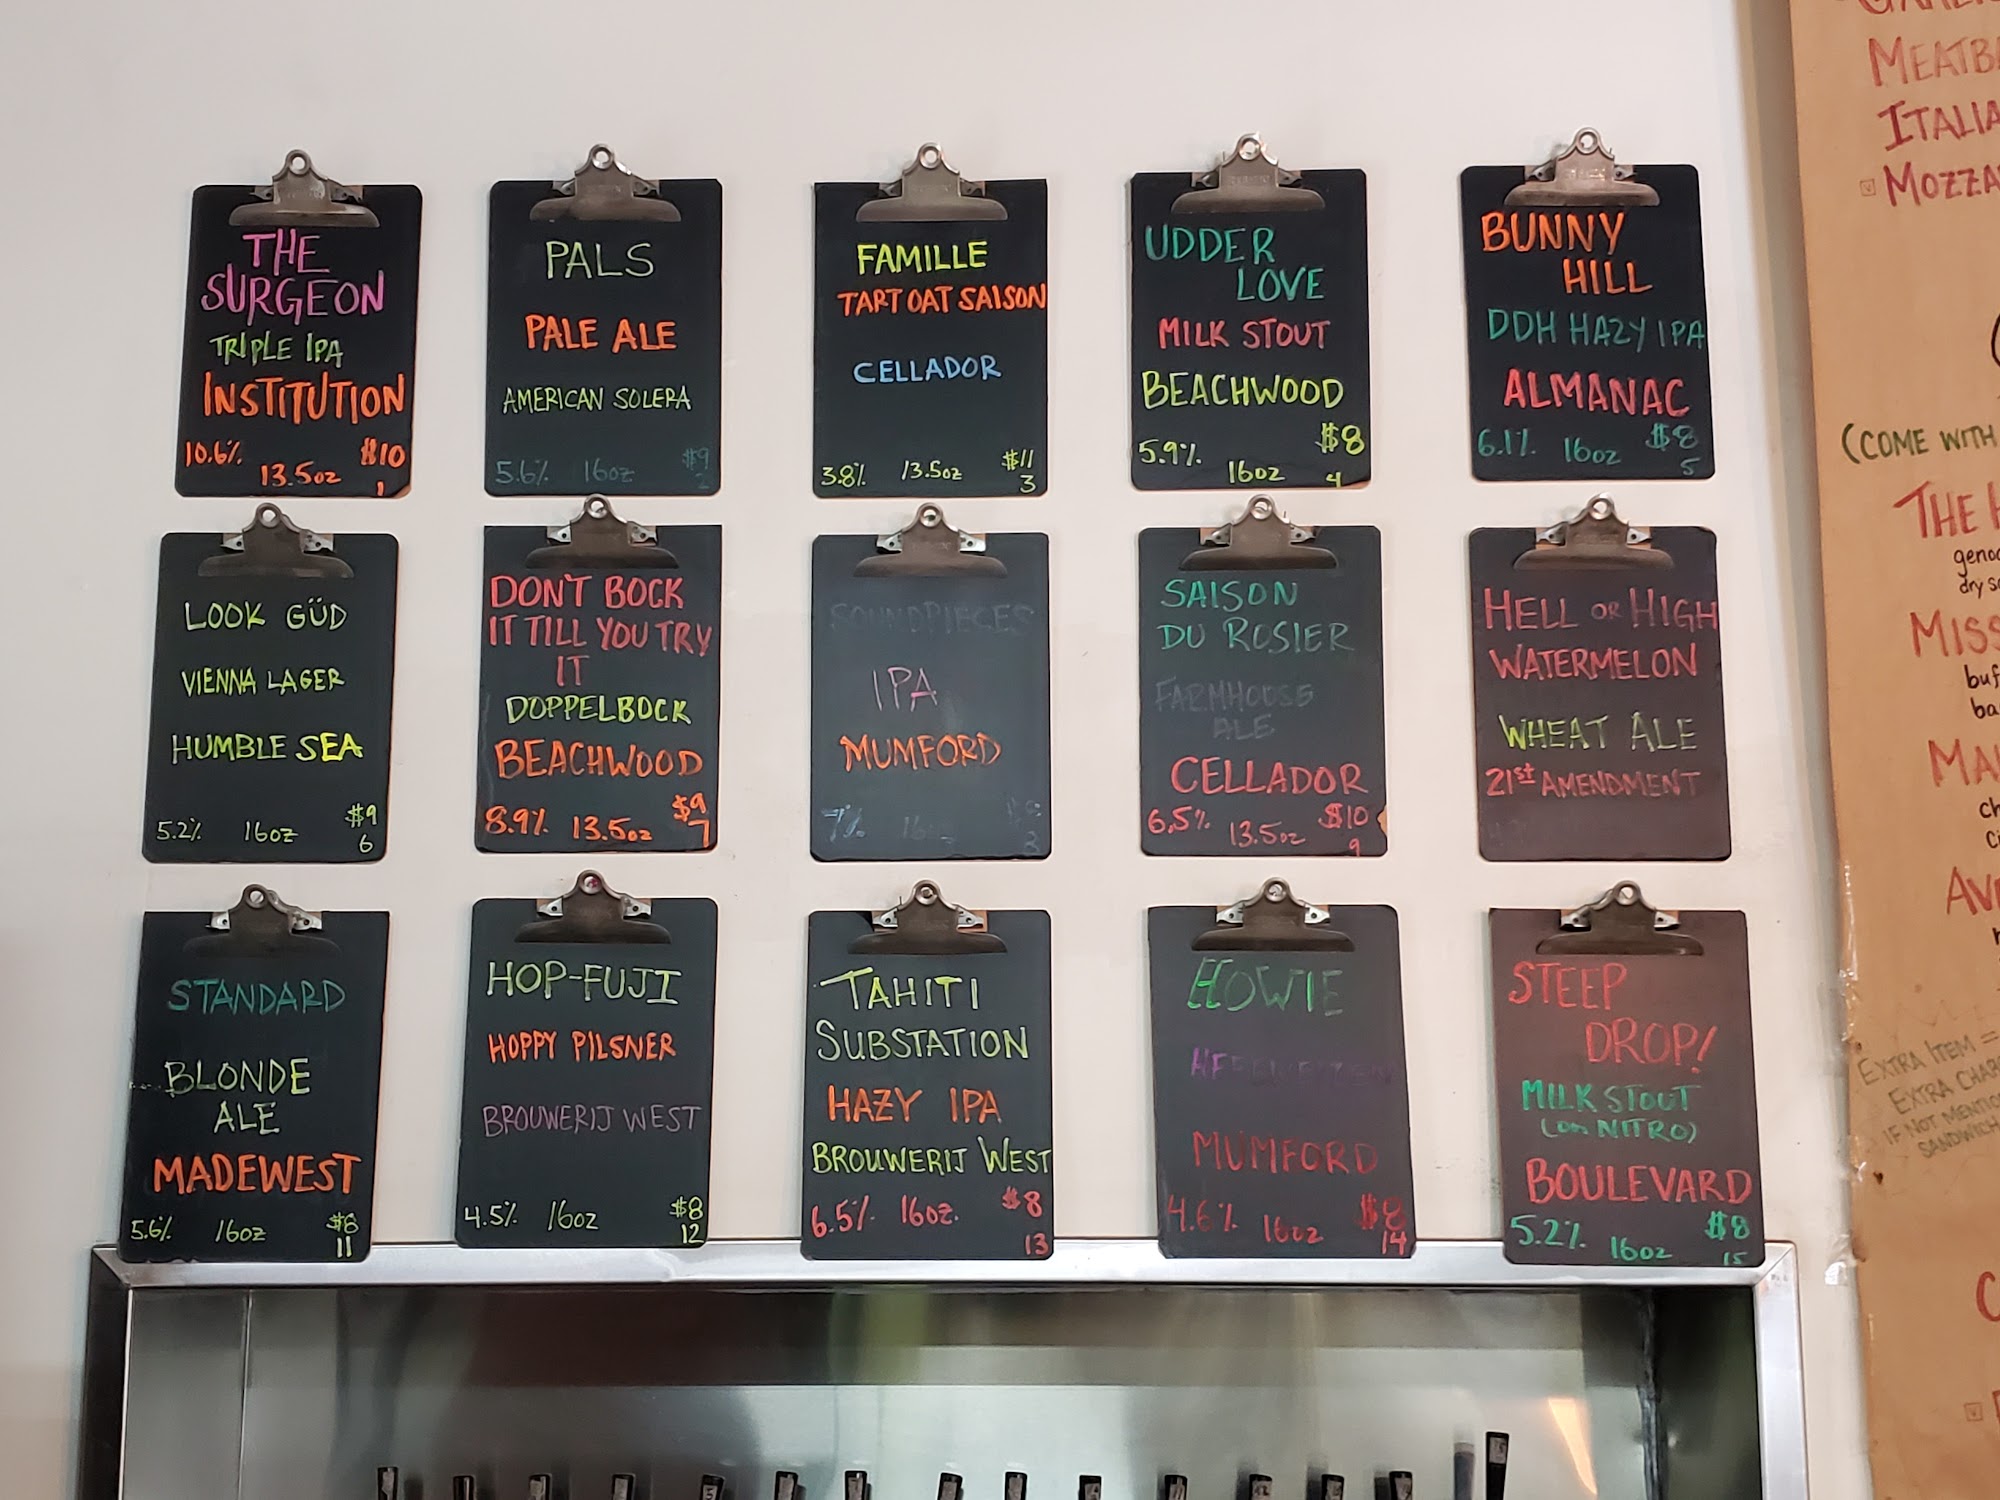 THE
SURGEON
TRIPLE IPA
INSTITUTION
10.6% 13.5oz $10
1
PALS
PALE ALE
AMERICAN SOLERA
5.6% 16oz $9
2
FAMILLE
TART OAT SAISON
CELLADOR
3.8% 13.5oz $11
3
UDDER
LOVE
MILK STOUT
BEACHWOOD
5.9% 16oz $8
4
BUNNY
HILL
DDH HAZY IPA
ALMANAC
6.1% 16oz $8
5
LOOK GÜD
VIENNA LAGER
HUMBLE SEA
5.2% 16oz $9
6
DON'T BOCK
IT TILL YOU TRY
IT
DOPPELBOCK
BEACHWOOD
8.9% 13.5oz $9
7
SOUNDPIECES
IPA
MUMFORD
7% 16oz
SAISON
DU ROSIER
FARMHOUSE
ALE
CELLADOR
6.5% 13.5oz $10
9
HELL OR HIGH
WATERMELON
WHEAT ALE
21st AMENDMENT
STANDARD
BLONDE
ALE
MADEWEST
5.6% 16oz $8
11
HOP-FUJI
HOPPY PILSNER
BROUWERIJ WEST
4.5% 16oz $8
12
TAHITI
SUBSTATION
HAZY IPA
BROUWERIJ WEST
6.5% 16oz. $8
13
HOWIE
MUMFORD
4.6% 16oz $8
14
STEEP
DROP!
MILK STOUT
(on NITRO)
BOULEVARD
5.2% 16oz $8
15
(COME WITH
THE
EXTRA ITEM =
EXTRA
IF NOT